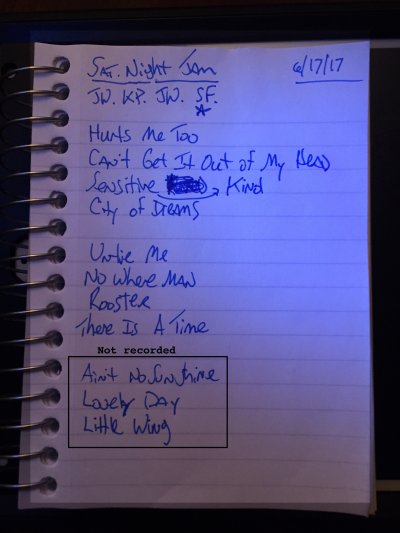 Sat. Night Jam 6/17/17
JW. KP. JW. SF.
*
Hurts Me Too
Can't Get It Out of My Head
Sensitive Kind
City of Dreams
Untie Me
No Where Man
Rooster
There Is A Time
Not recorded
Ain't No Sunshine
Lovely Day
Little Wing